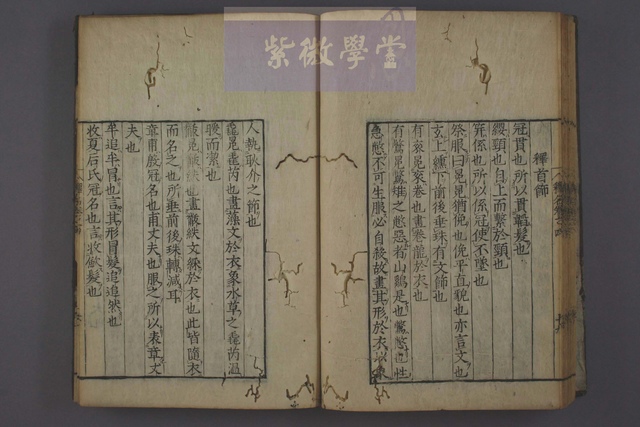 紫微學堂
釋首飾
冠貫也所以貫韜髮也
纓頸也自上而繫於頸也
笄係也所以係冠使不墜也
祭服曰冕冕猶俛也俛平直貌也亦言文也
玄上纁下前後垂珠有文飾也
有衮冕衮卷也畫卷龍於衣也
有鷩冕鷩雉之憋惡者山鷄是也鷩憋也性
急憋不可生服必自殺故畫其形於衣以象
人執耿外之節也
毳冕毳芮也畫藻文於衣象水草之毳芮温
暖而潔也
黻冕黻紩也畫黻紩文綵於衣也此皆隨衣
而名之也所垂前後珠轉減耳
章甫殷冠名也甫丈夫也服之所以表章丈
夫也
牟追牟冒也言其形冒髮追追然也
收夏后氏冠名也言收斂髮也